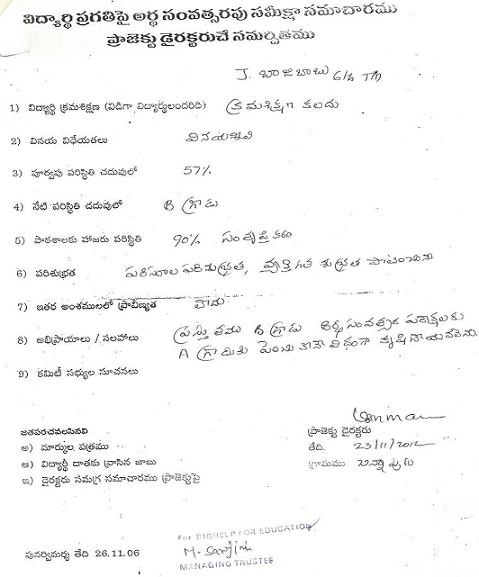 విద్యార్థి ప్రగతిపై అర్థ సంవత్సరపు సమీక్షా సమాచారము
ప్రాజెక్టు డైరక్టరుచే సమర్పితము
J. బాజిబాబు 6th TM
1) విద్యార్థి క్రమశిక్షణ (విడిగా విద్యార్థులందరిది) క్రమశిక్షణ కలదు
2) వినయ విధేయతలు వినయశీలి
3) పూర్వపు పరిస్థితి చదువులో 57%
4) నేటి పరిస్థితి చదువులో B గ్రాడు
5) పాఠశాలకు హాజరు పరిస్థితి 90% సంతృప్తికరం
6) పరిశుభ్రత పరిసరాల పరిశుభ్రత, వ్యక్తిగత శుభ్రత పాటించును
7) ఇతర అంశములలో ప్రావీణ్యత
8) అభిప్రాయాలు / సలహాలు ప్రస్తుతము B గ్రాడు అర్ధ సంవత్సర పరీక్షలకు
A గ్రాడుకు పెంచు కునే విధంగా కృషి చేయవలెను
9) కమిటీ సభ్యుల సూచనలు
జతపరచవలసినవి
ప్రాజెక్టు డైరెక్టరు
అ) మార్కుల పత్రము
తేది. 23/11/2012
ఆ) విద్యార్థి దాతకు వ్రాసిన జాబు
గ్రామము
ఇ) డైరక్టరు సమగ్ర సమాచారము ప్రాజెక్టుపై
For BIGHELP FOR EDUCATION
పునర్విమర్శ తేది 26.11.06
MANAGING TRUSTEE